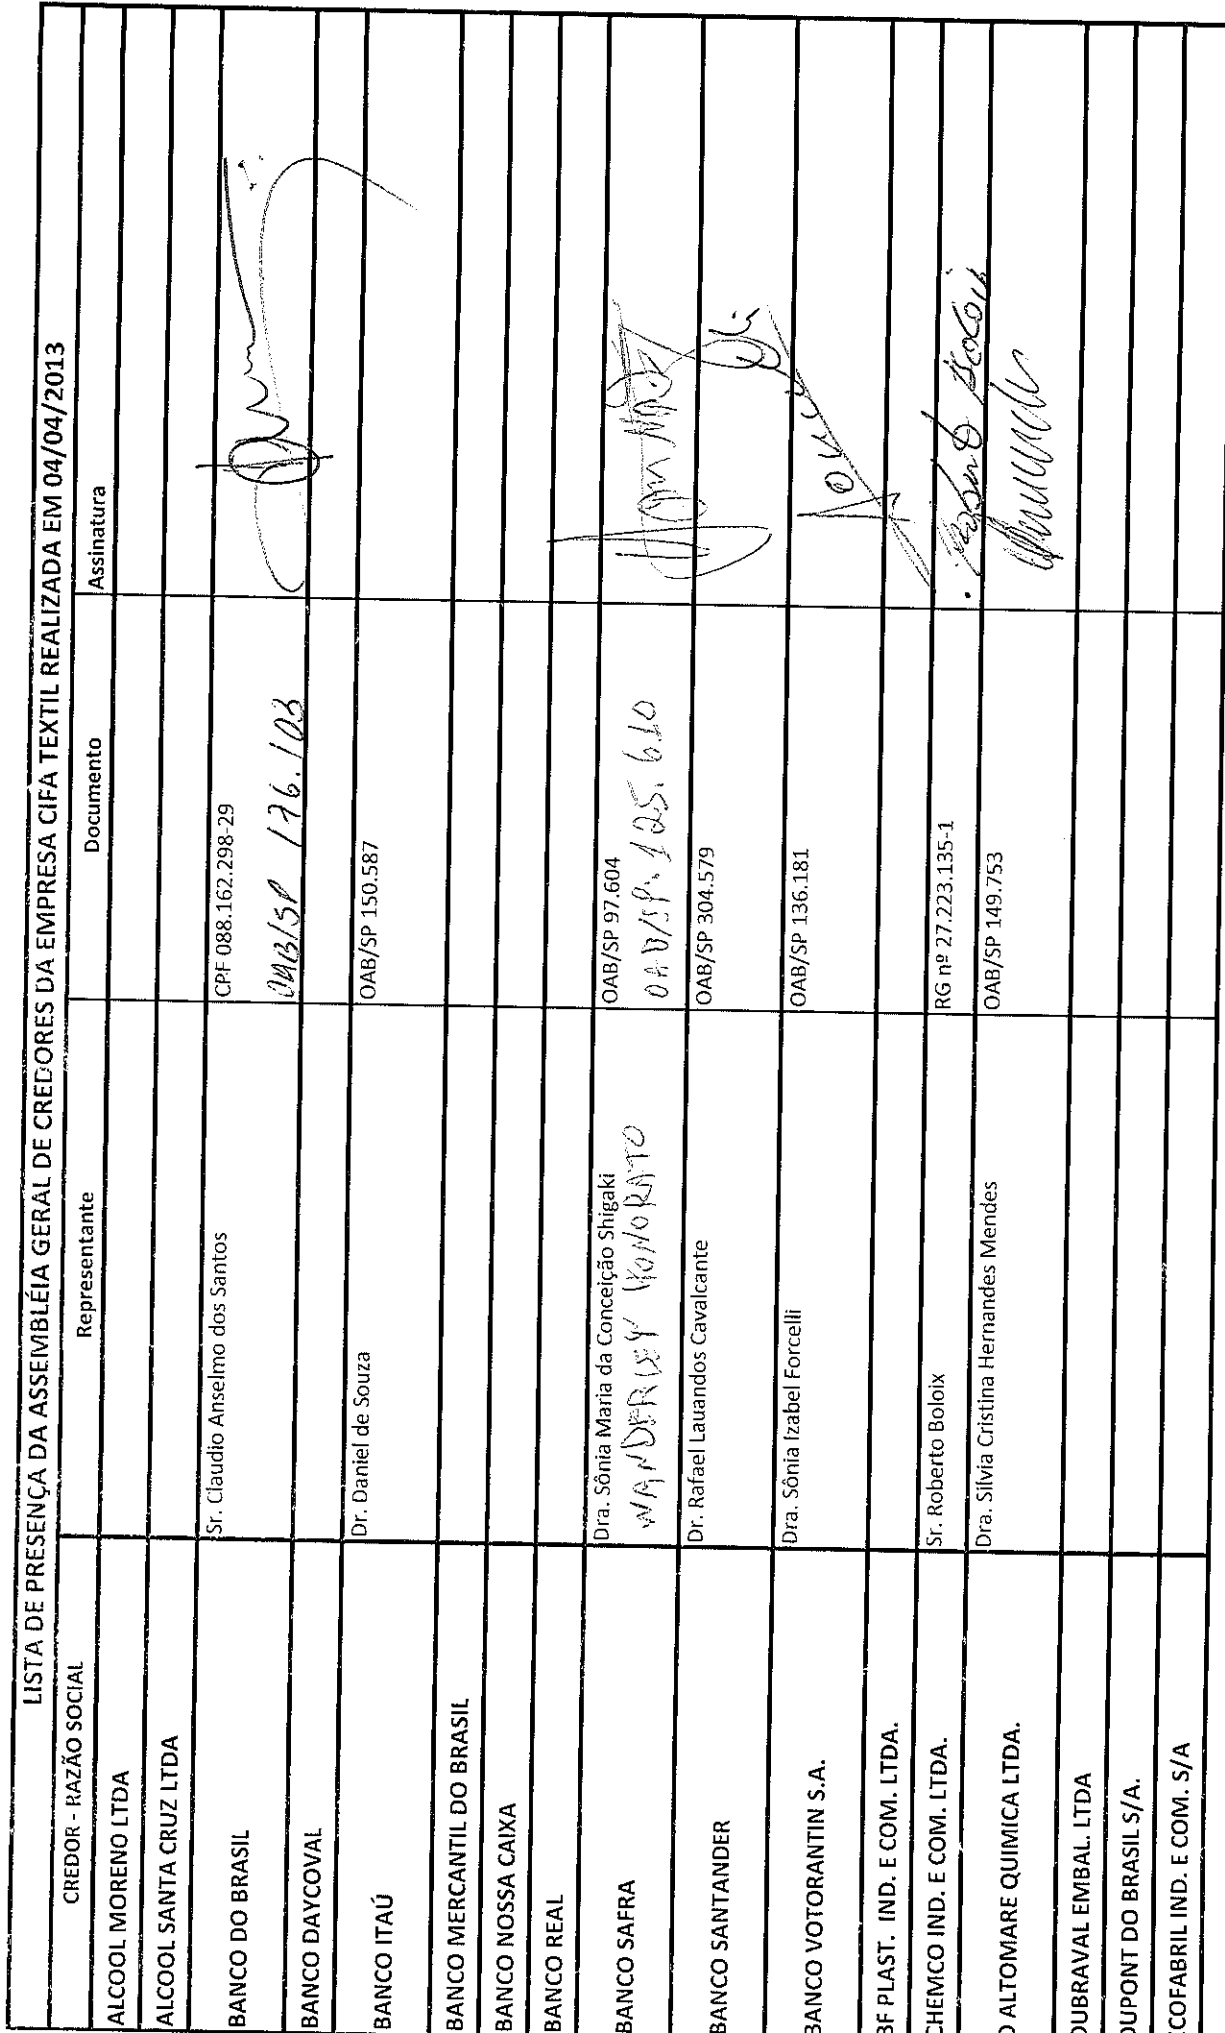 LISTA DE PRESENÇA DA ASSEMBLÉIA GERAL DE CREDORES DA EMPRESA CIFA TEXTIL REALIZADA EM 04/04/2013
CREDOR - RAZÃO SOCIAL Representante Documento Assinatura
ALCOOL MORENO LTDA
ALCOOL SANTA CRUZ LTDA
BANCO DO BRASIL Sr. Claudio Anselmo dos Santos CPF 088.162.298-29
OAB/SP 176.103
BANCO DAYCOVAL
BANCO ITAÚ Dr. Daniel de Souza OAB/SP 150.587
BANCO MERCANTIL DO BRASIL
BANCO NOSSA CAIXA
BANCO REAL
BANCO SAFRA Dra. Sônia Maria da Conceição Shigaki OAB/SP 97.604
WANDERLEY HONORATO OAB/SP. 125.610
BANCO SANTANDER Dr. Rafael Lauandos Cavalcante OAB/SP 304.579
BANCO VOTORANTIN S.A. Dra. Sônia Izabel Forcelli OAB/SP 136.181
BF PLAST. IND. E COM. LTDA.
CHEMCO IND. E COM. LTDA. Sr. Roberto Boloix RG nº 27.223.135-1 Roberto Boloix
ALTOMARE QUIMICA LTDA. Dra. Silvia Cristina Hernandes Mendes OAB/SP 149.753
DUBRAVAL EMBAL. LTDA
DUPONT DO BRASIL S/A.
COFABRIL IND. E COM. S/A